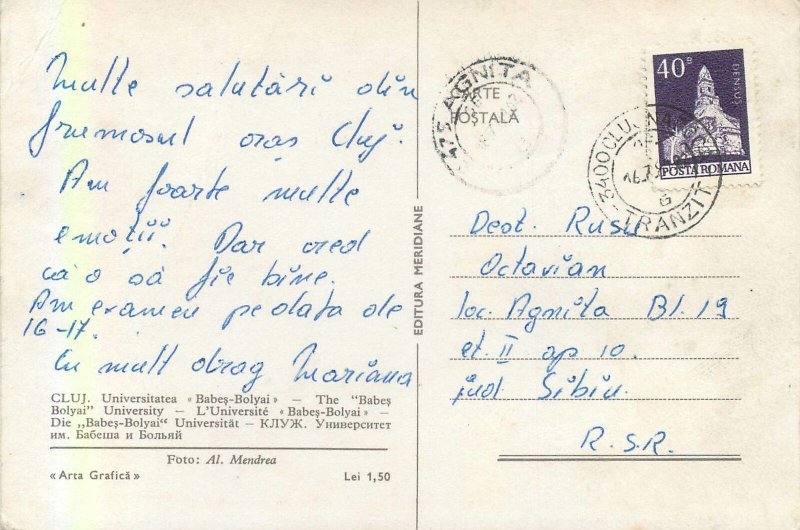 Multe salutări din
frumosul oraș Cluj.
Am foarte multe
emoții. Dar cred
că o să fie bine.
Am examen pe data de
16-17.
Cu mult drag Mariana
CLUJ. Universitatea «Babeș-Bolyai» — The "Babeș
Bolyai" University — L'Université «Babeș-Bolyai» —
Die „Babeș-Bolyai" Universität — КЛУЖ. Университет
им. Бабеша и Больяй
Foto: Al. Mendrea
«Arta Grafică» Lei 1,50
EDITURA MERIDIANE
CARTE
POȘTALĂ
AGNITA
40 B
DENSUȘ
POSTA ROMANA
3400 CLUJ NA
TRANZIT
G
Dest. Rusu
Octavian
loc. Agnita Bl. 19
et. II ap 10.
jud Sibiu.
R.S.R.